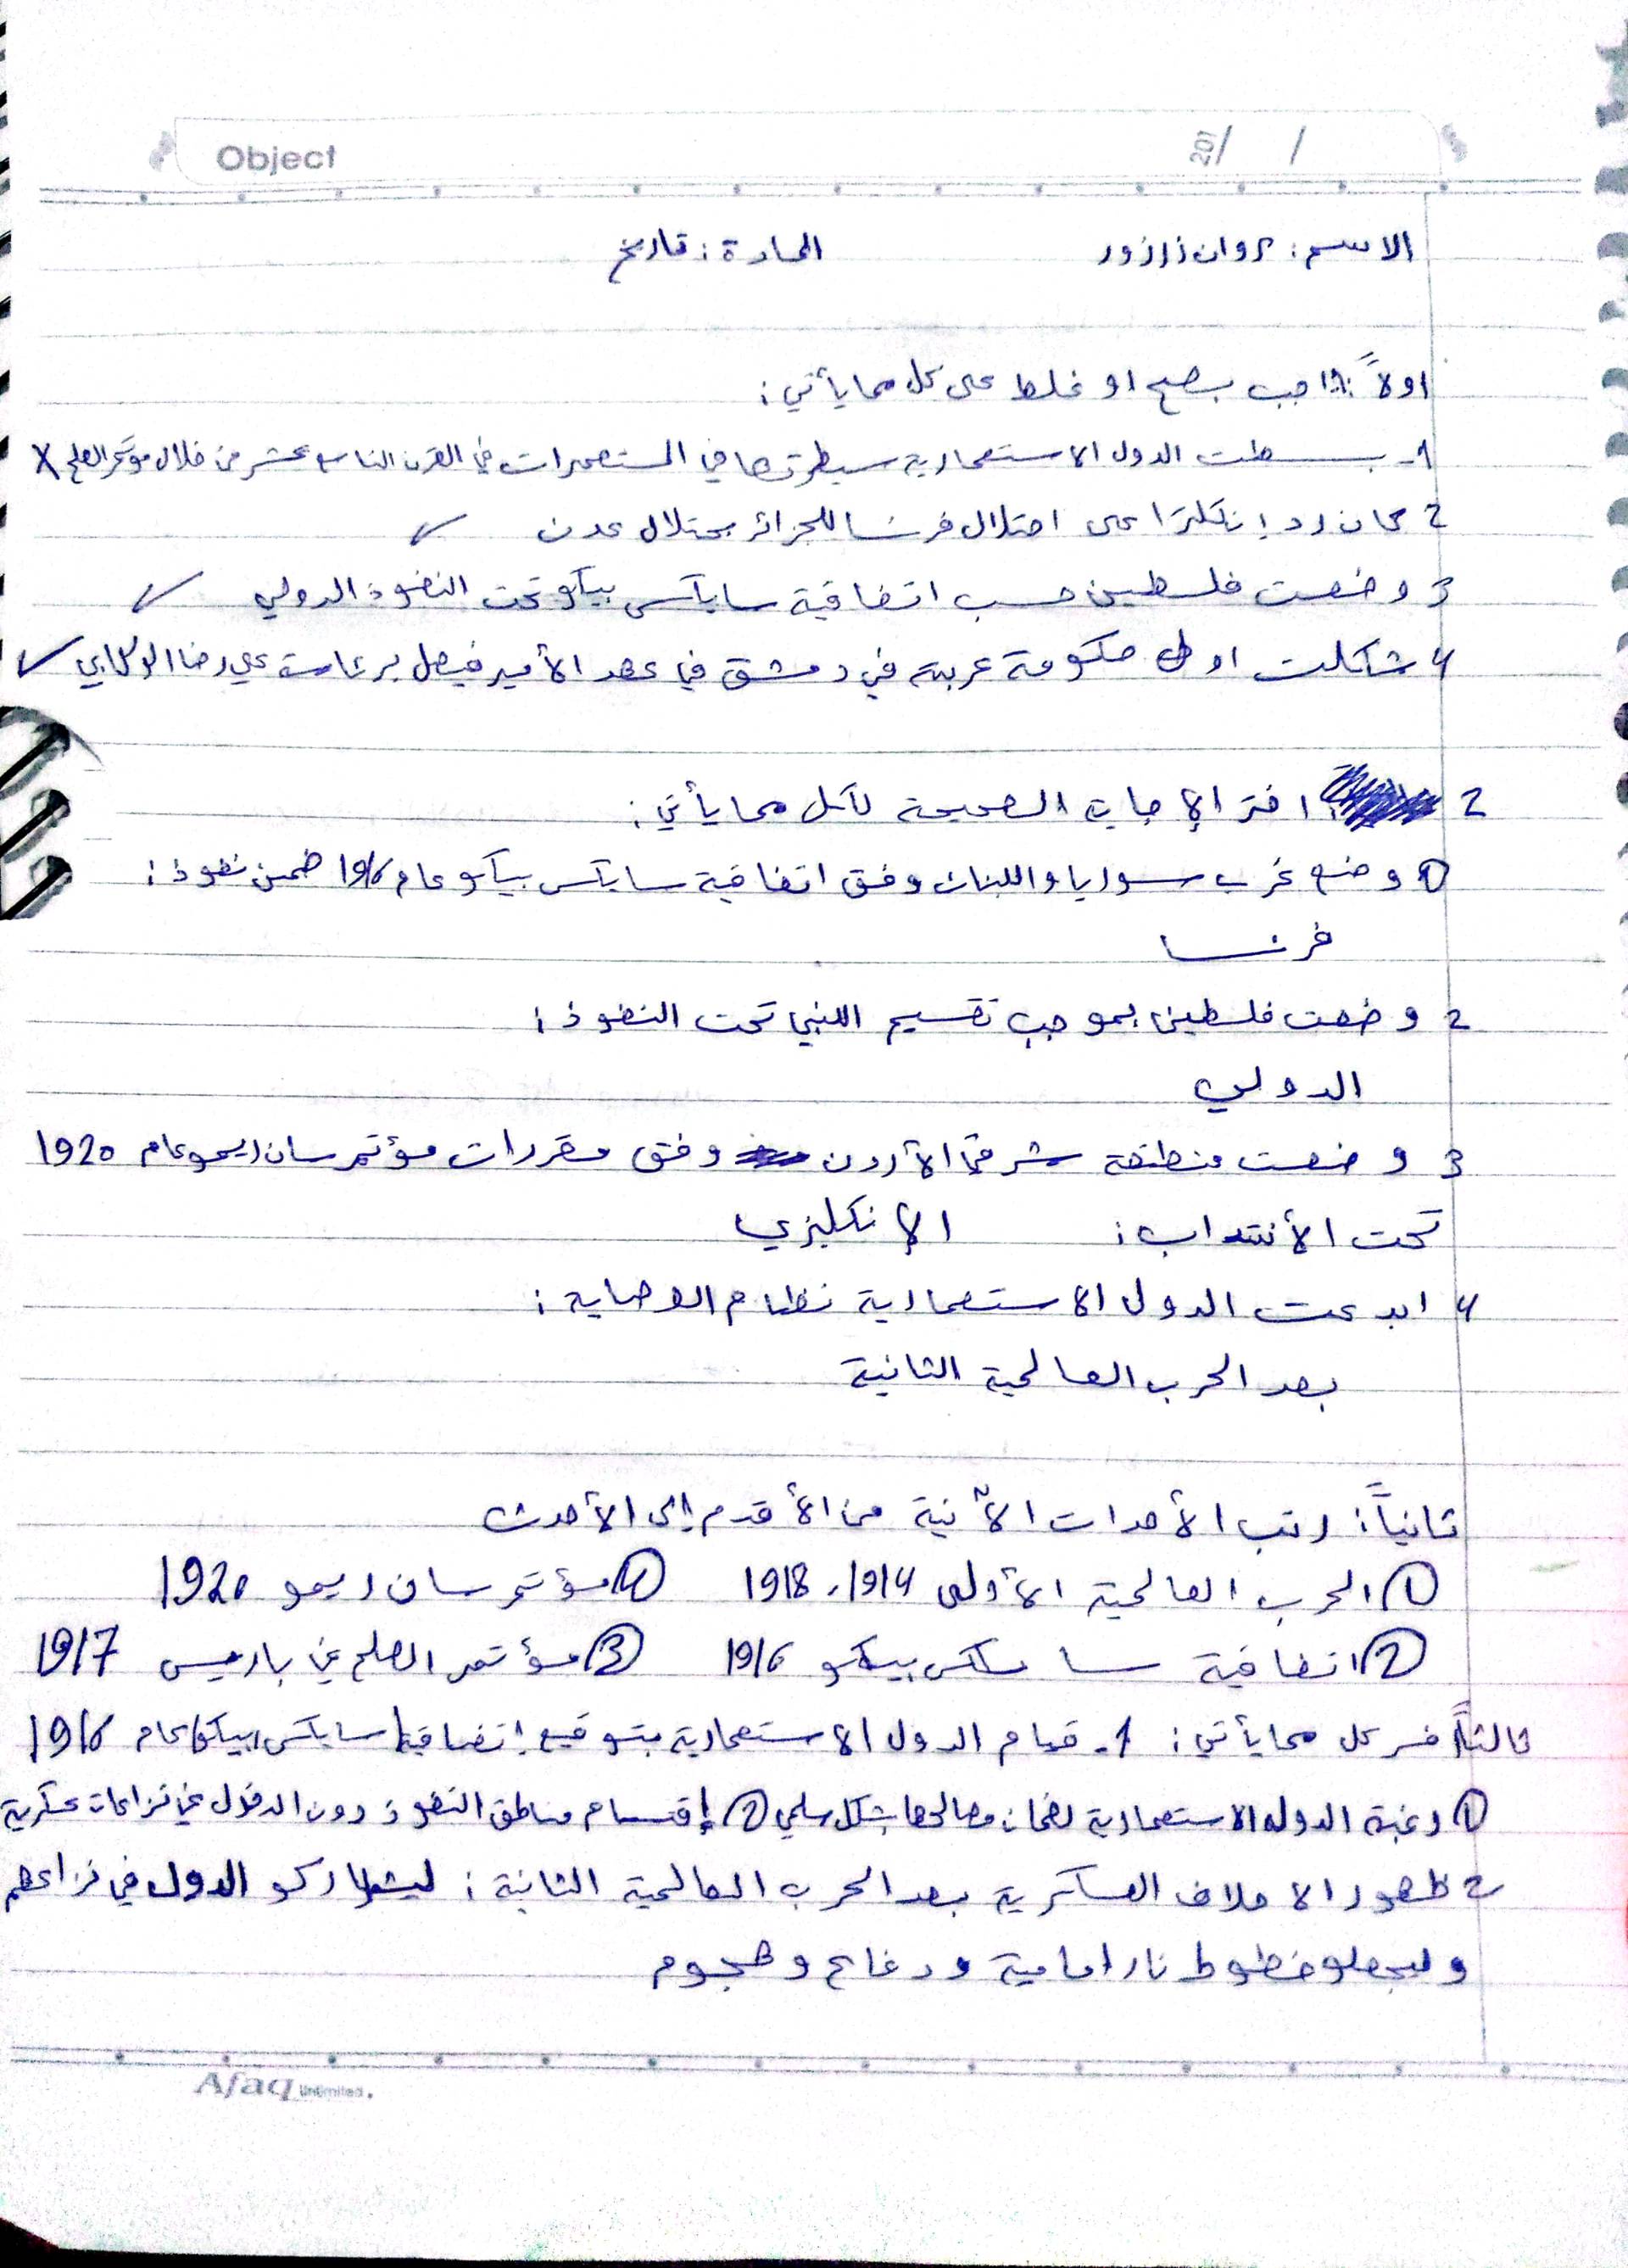 Object
/ / 201
الاسم: روان زرزور المادة: تاريخ
اولاً: اجب بصح او غلط على كل ممايأتي:
1- بسطت الدول الاستعمارية سيطرتها في المستعمرات في القرن التاسع عشر من خلال مؤتمر الصلح X
2 كان رد إنكلترا على احتلال فرنسا للجزائر بحتلال عدن ✓
3 وضعت فلسطين حسب اتفاقية سايكس بيكو تحت النفوذ الدولي ✓
4 شكلت اول حكومة عربية في دمشق في عهد الأمير فيصل برئاست علي رضا الركابي ✓
2 اختر الإجابة الصحيحة لكل ممايأتي:
① وضع غرب سوريا واللبنان وفق اتفاقية سايكس بيكو عام 1916 ضمن نفوذ:
فرنسا
2 وضعت فلسطين بموجب تقسيم اللنبي تحت النفوذ:
الدولي
3 وضعت منطقة شرقي الأردن وفق مقررات مؤتمر سان ريمو عام 1920
تحت الأنتداب: الإنكليزي
4 ابدعت الدول الاستعمارية نظام الوصاية:
بعد الحرب العالمية الثانية
ثانياً: رتب الأحداث الآتية من الأقدم إلى الأحدث
① الحرب العالمية الأولى 1914، 1918 ④ مؤتمر سان ريمو 1920
② اتفاقية سايكس بيكو 1916 ③ مؤتمر الصلح في باريس 1917
ثالثاً فسر كل ممايأتي: 1- قيام الدول الاستعمارية بتوقيع إتفاقية سايكس بيكو عام 1916
① رغبة الدول الاستعمارية لضمان مصالحها بشكل سلمي ② إقتسام مناطق النفوذ دون الدخول في نزاعات عسكرية
2 ظهور الاحلاف العسكرية بعد الحرب العالمية الثانية: ليشاركو الدول في نزاعهم
وليجعلو خطوط نار امامية ودفاع وهجوم
Afaq Unlimited.